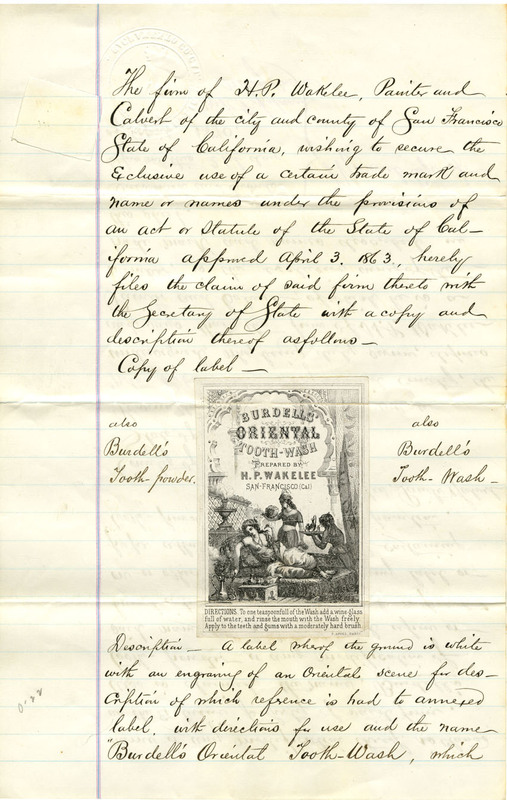 The firm of H.P. Wakelee, Painter and
Calvert of the city and county of San Francisco
State of California, wishing to secure the
Exclusive use of a certain trade mark and
name or names under the provisions of
an act or Statute of the State of Cal-
ifornia approved April 3. 1863, hereby
files the claim of said firm thereto with
the Secretary of State with a copy and
description thereof as follows -
Copy of label -
also
Burdell's
Tooth-powder.
BURDELLS'
ORIENTAL
TOOTH-WASH
PREPARED BY
H.P. WAKELEE
SAN-FRANCISCO (Cal)
DIRECTIONS. To one teaspoonfull of the Wash add a wine-glass
full of water, and rinse the mouth with the Wash freely.
Apply to the teeth and gums with a moderately hard brush
also
Burdell's
Tooth-Wash -
Description - A label wherof the ground is white
with an engraving of an Oriental scene for des-
cription of which reference is had to annexed
label, with directions for use and the name
"Burdell's Oriental Tooth-Wash, which